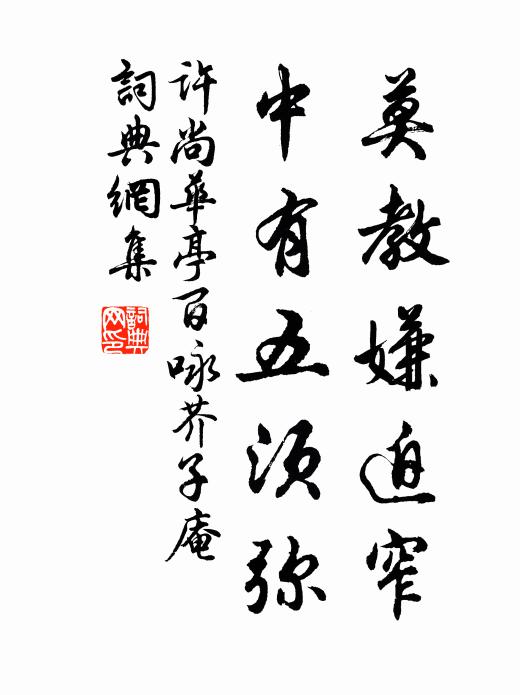 莫教嫌迫窄
中有五须弥
许尚華亭百咏芥子庵
詞典網集
詞典网印